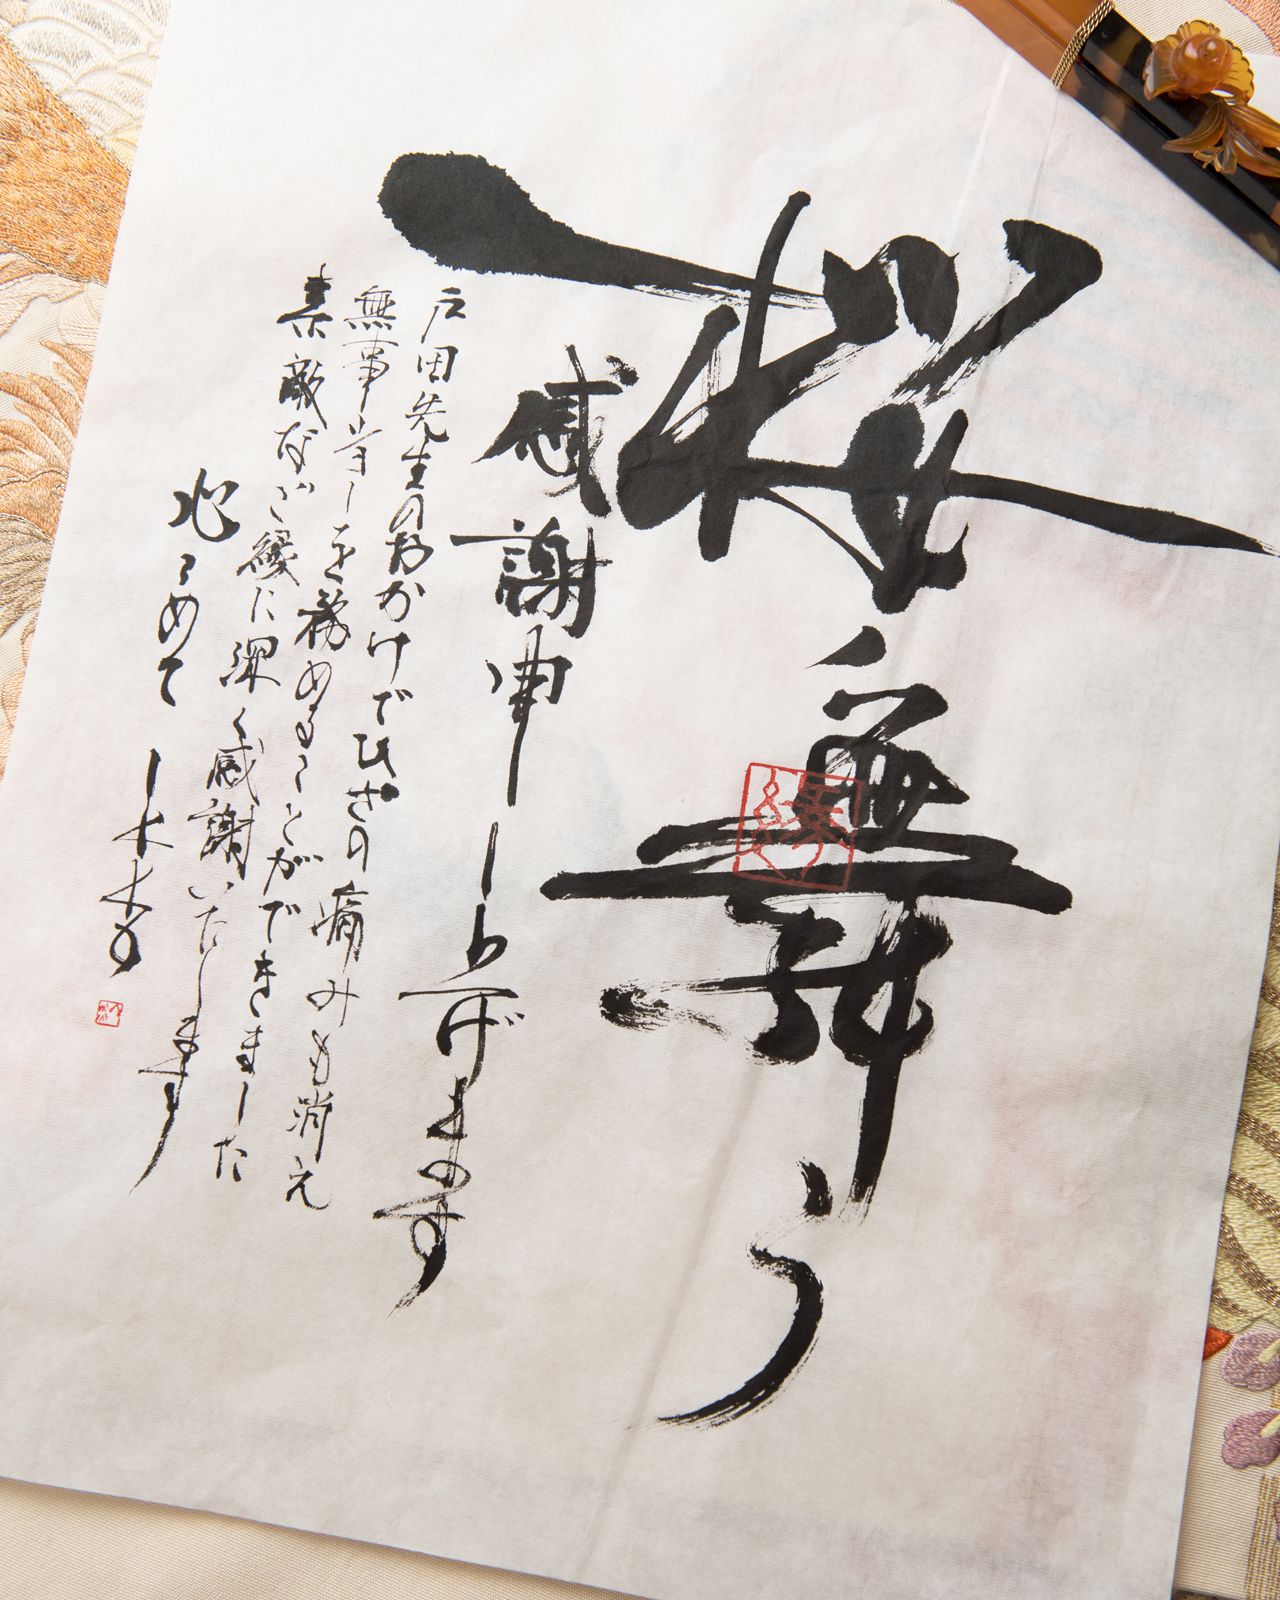 桜舞う
感謝申し上げます
戸田先生のおかげでひざの痛みも消え
無事女しを務めることができました
素敵なご縁に深く感謝いたします
心こめて